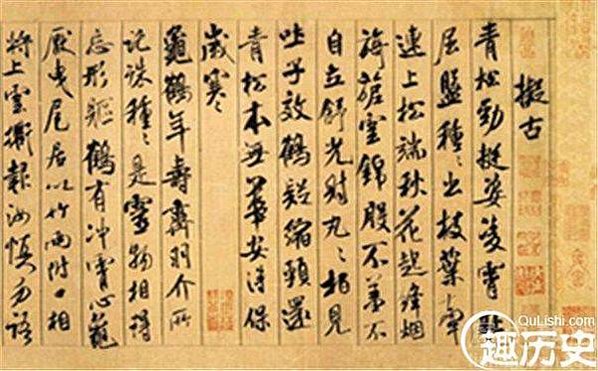 擬古
青松勁挺姿凌霄恥
屈盤種〻出枝葉牽
連上松端秋花起絳烟
旖旎雲錦殷不羞不
自立舒光射丸〻柏見
吐子效鶴疑縮頸還
青松本無華安得保
歲寒〻
龜鶴年壽齊羽介所
託殊種〻是靈物相得
忘形軀鶴有沖霄心龜
厭曳尾居以竹兩附口相
將上雲衢報汝慎勿語
QuLishi.com
趣历史